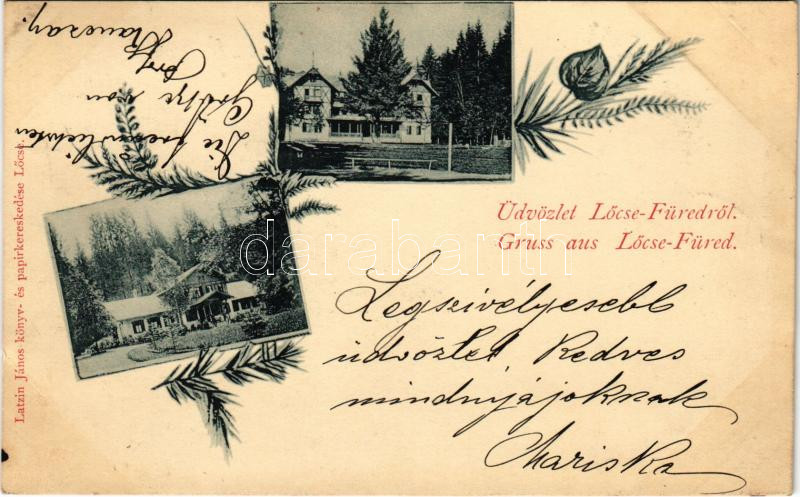 Die freundlichsten
Grüsse von
Prof
Üdvözlet Lőcse-Füredről.
Gruss aus Lőcse-Füred.
Legszivélyesebb
üdvözlet, kedves
mindnyájoknak
Mariska
Latzin János könyv- és papirkereskedése Lőcse.
darabanth